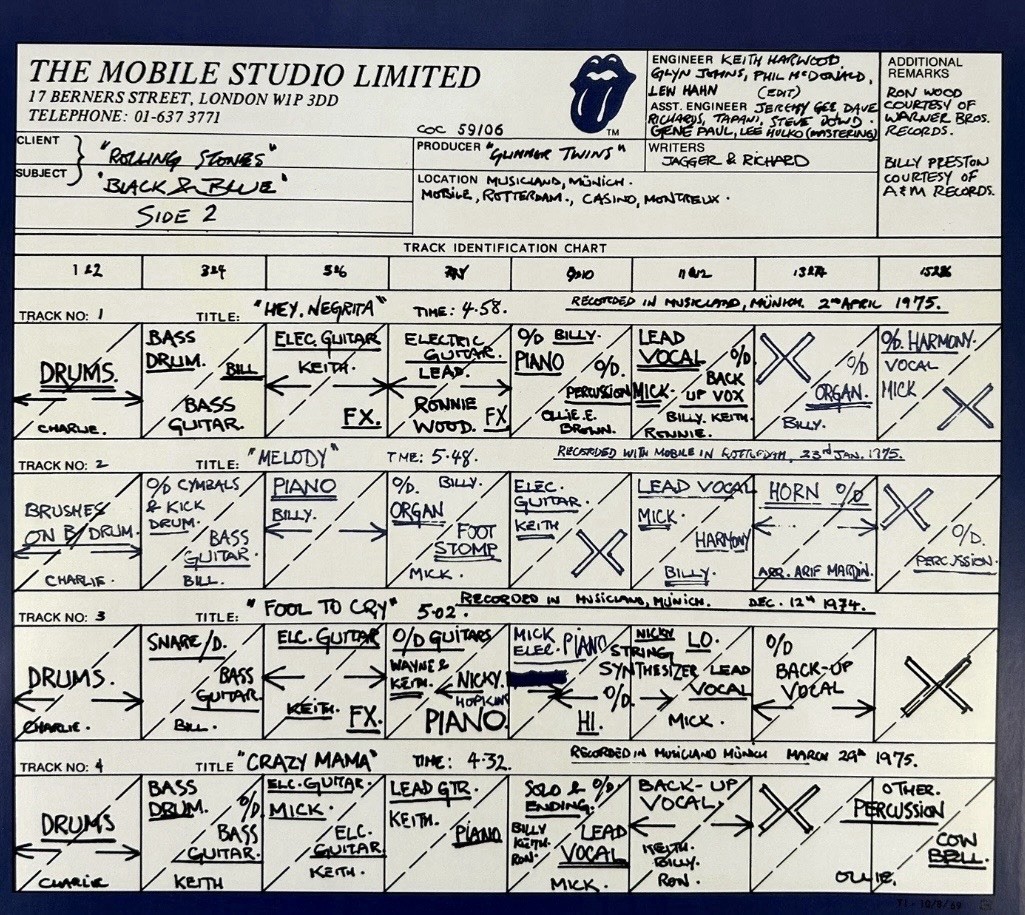 THE MOBILE STUDIO LIMITED
17 BERNERS STREET, LONDON W1P 3DD
TELEPHONE: 01-637 3771
COC 59106
TM
ENGINEER KEITH HARWOOD
GLYN JOHNS, PHIL McDONALD,
LEW HAHN (EDIT)
ASST. ENGINEER JEREMY GEE DAVE
RICHARDS, TAPANI, STEVE DOWD.
GENE PAUL, LEE HULKO (MASTERING)
ADDITIONAL
REMARKS
RON WOOD
COURTESY OF
WARNER BROS.
RECORDS.
BILLY PRESTON
COURTESY OF
A&M RECORDS.
CLIENT
SUBJECT
"ROLLING STONES"
"BLACK & BLUE"
SIDE 2
PRODUCER "GLIMMER TWINS"
WRITERS
JAGGER & RICHARD
LOCATION MUSICLAND, MÜNICH.
MOBILE, ROTTERDAM., CASINO, MONTREUX.
TRACK IDENTIFICATION CHART
1 & 2
3 & 4
5 & 6
9 & 10
11 & 12
TRACK NO: 1 TITLE: "HEY, NEGRITA" TIME: 4.58. RECORDED IN MUSICLAND, MÜNICH. 2ND APRIL 1975.
DRUMS.
CHARLIE.
BASS
DRUM.
BILL
BASS
GUITAR.
ELEC. GUITAR
KEITH.
FX.
ELECTRIC
GUITAR.
LEAD.
RONNIE
WOOD. FX
O/D BILLY.
PIANO
O/D.
PERCUSSION
OLLIE.E.
BROWN.
LEAD
VOCAL
MICK.
O/D
BACK
UP VOX
BILLY. KEITH.
RONNIE.
O/D
ORGAN.
BILLY.
O/D. HARMONY.
VOCAL
MICK
TRACK NO: 2 TITLE: "MELODY" TIME: 5.48. RECORDED WITH MOBILE IN ROTTERDAM, 23RD JAN. 1975.
BRUSHES
ON B/DRUM.
CHARLIE.
O/D CYMBALS
& KICK
DRUM.
BASS
GUITAR.
BILL.
PIANO
BILLY.
O/D. BILLY.
ORGAN
FOOT
STOMP
MICK.
ELEC.
GUITAR.
KEITH
LEAD VOCAL
MICK.
HARMONY
BILLY.
HORN O/D
ARR. ARIF MARDIN.
O/D.
PERCUSSION.
TRACK NO: 3 TITLE: "FOOL TO CRY" 5.02. RECORDED IN MUSICLAND, MUNICH. DEC. 12TH 1974.
DRUMS.
CHARLIE.
SNARE/D.
BASS
GUITAR.
BILL.
ELC. GUITAR
KEITH. FX.
O/D GUITARS
WAYNE &
KEITH.
NICKY.
HOPKINS
PIANO.
MICK
ELEC. PIANO
O/D.
HI.
NICKY
STRING
SYNTHESIZER
LO.
LEAD
VOCAL
MICK.
O/D
BACK-UP
VOCAL
TRACK NO: 4 TITLE "CRAZY MAMA" TIME: 4.32. RECORDED IN MUSICLAND MÜNICH MARCH 29TH 1975.
DRUMS
CHARLIE
BASS
DRUM.
O/D
BASS
GUITAR.
KEITH
ELC. GUITAR.
MICK.
ELC.
GUITAR.
KEITH.
LEAD GTR.
KEITH.
PIANO
SOLO & O/D.
ENDING.
BILLY
KEITH.
RON.
LEAD
VOCAL
MICK.
BACK-UP
VOCAL.
KEITH.
BILLY.
RON.
OTHER.
PERCUSSION
OLLIE.
COW
BELL.